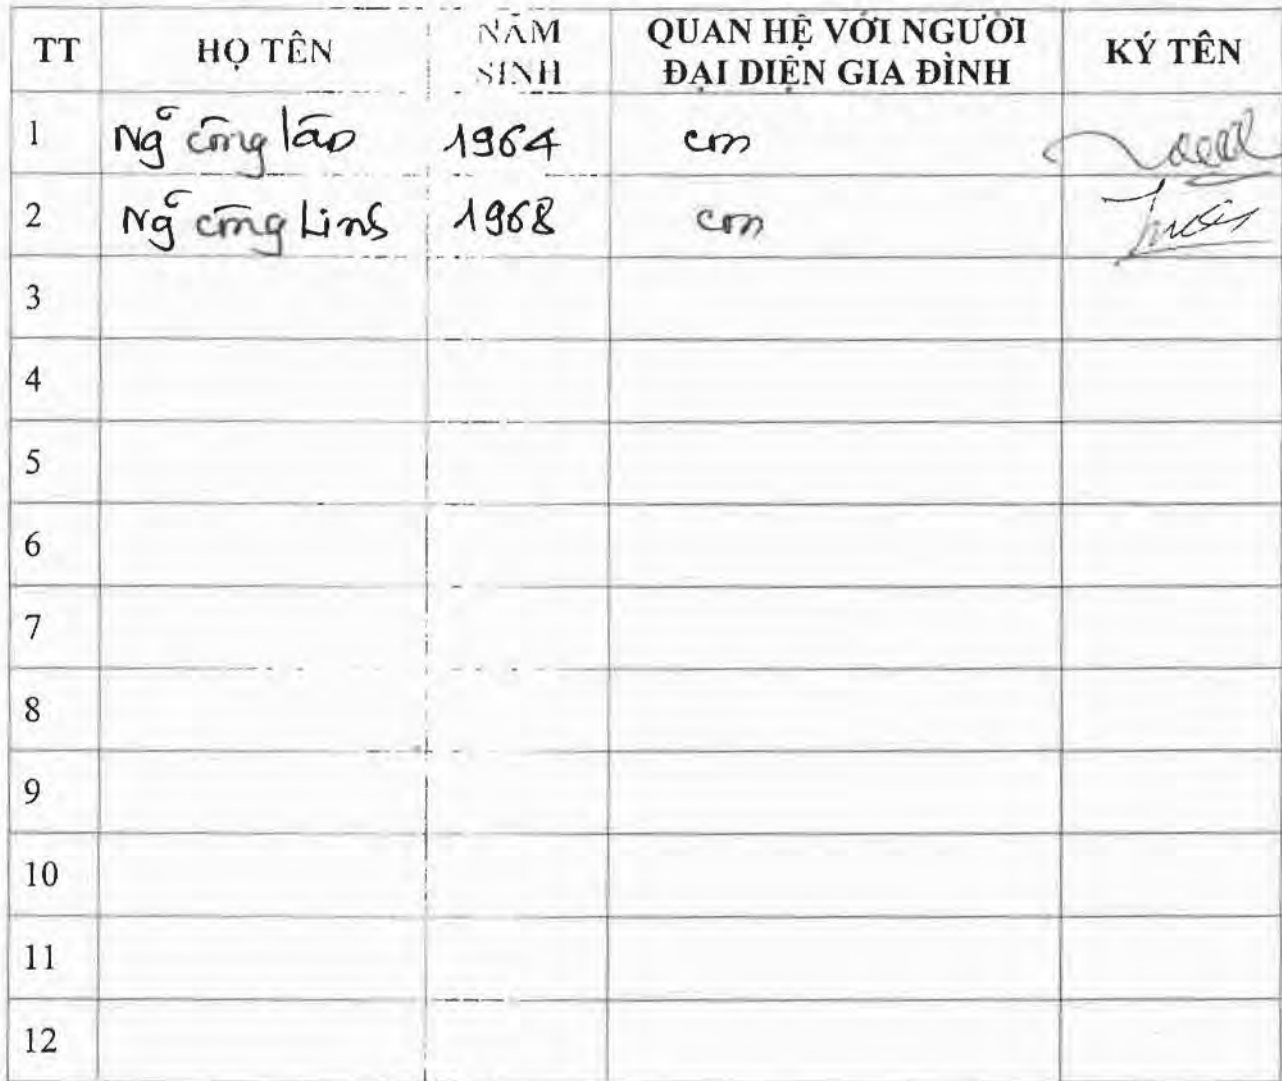 TT HỌ TÊN NĂM SINH QUAN HỆ VỚI NGƯỜI ĐẠI DIỆN GIA ĐÌNH KÝ TÊN
1 Ngô công lão 1964 con
2 Ngô công Linh 1968 con
3
4
5
6
7
8
9
10
11
12